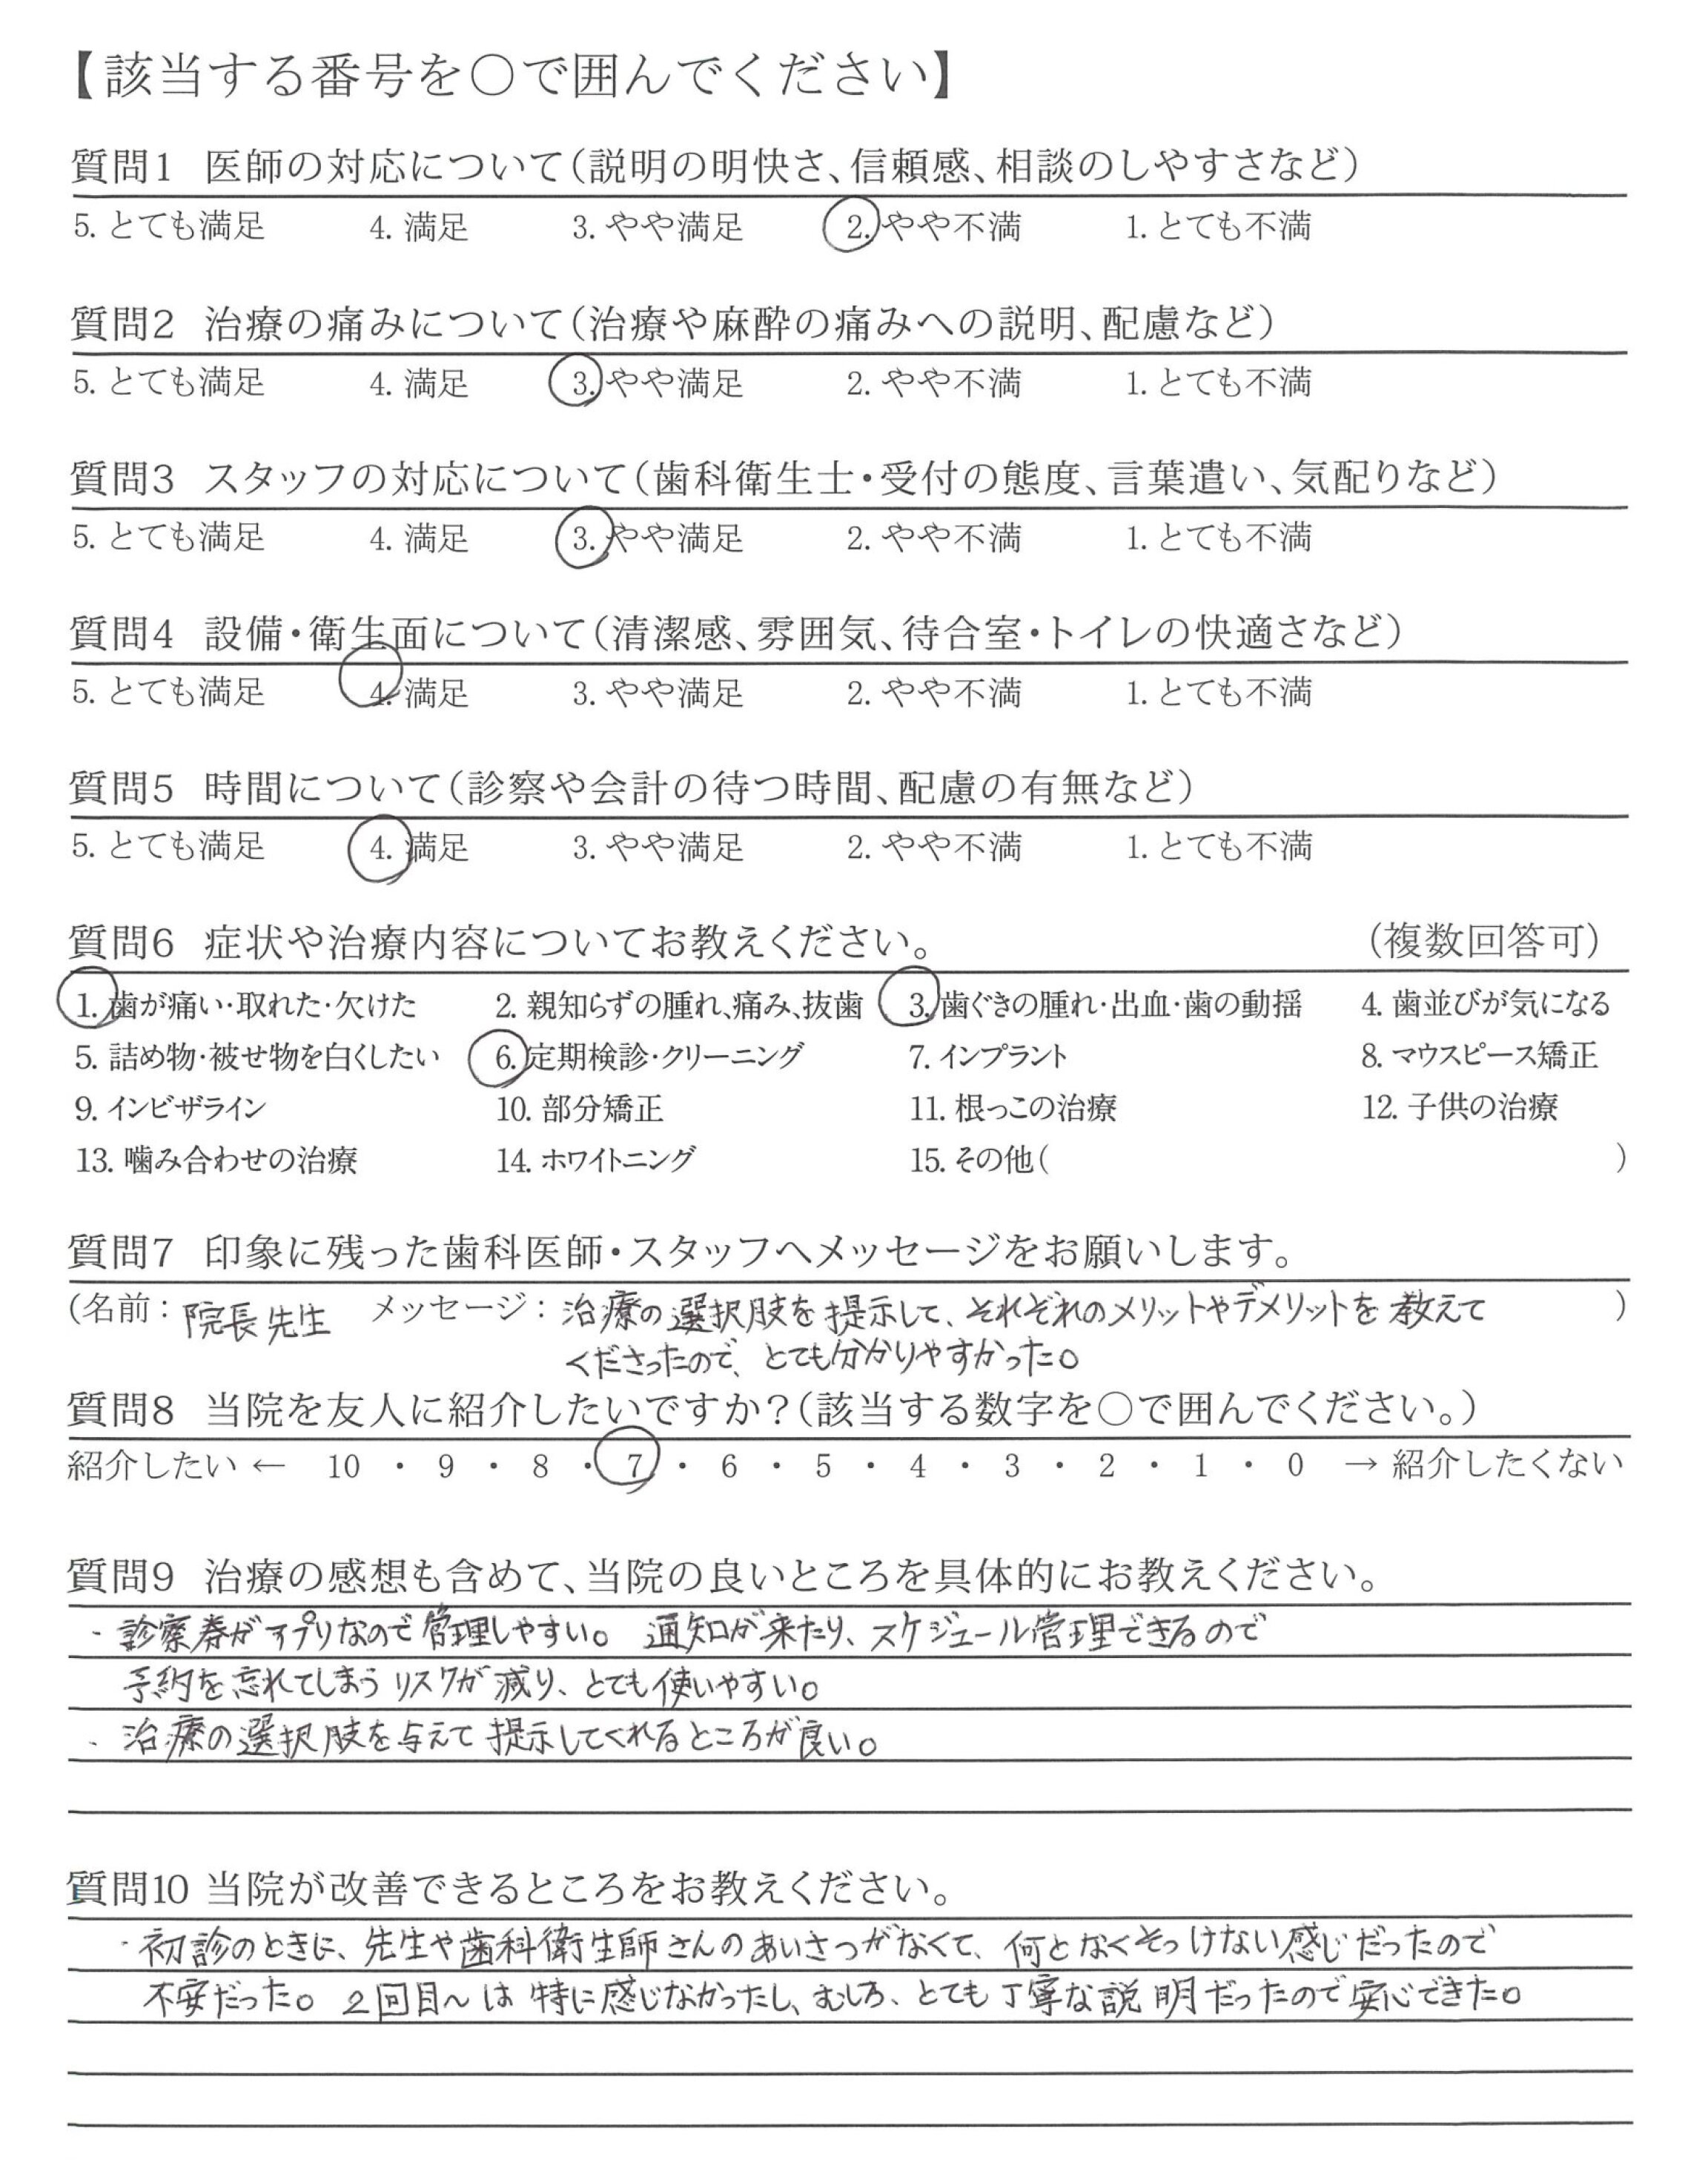 【該当する番号を○で囲んでください】
質問1 医師の対応について(説明の明快さ、信頼感、相談のしやすさなど)
5. とても満足 4. 満足 3. やや満足 2. やや不満 1. とても不満
質問2 治療の痛みについて(治療や麻酔の痛みへの説明、配慮など)
5. とても満足 4. 満足 3. やや満足 2. やや不満 1. とても不満
質問3 スタッフの対応について(歯科衛生士・受付の態度、言葉遣い、気配りなど)
5. とても満足 4. 満足 3. やや満足 2. やや不満 1. とても不満
質問4 設備・衛生面について(清潔感、雰囲気、待合室・トイレの快適さなど)
5. とても満足 4. 満足 3. やや満足 2. やや不満 1. とても不満
質問5 時間について(診察や会計の待つ時間、配慮の有無など)
5. とても満足 4. 満足 3. やや満足 2. やや不満 1. とても不満
質問6 症状や治療内容についてお教えください。 (複数回答可)
1. 歯が痛い・取れた・欠けた 2. 親知らずの腫れ、痛み、抜歯 3. 歯ぐきの腫れ・出血・歯の動揺 4. 歯並びが気になる
5. 詰め物・被せ物を白くしたい 6. 定期検診・クリーニング 7. インプラント 8. マウスピース矯正
9. インビザライン 10. 部分矯正 11. 根っこの治療 12. 子供の治療
13. 噛み合わせの治療 14. ホワイトニング 15. その他( )
質問7 印象に残った歯科医師・スタッフへメッセージをお願いします。
(名前: 院長先生 メッセージ: 治療の選択肢を提示して、それぞれのメリットやデメリットを教えて )
くださったので、とても分かりやすかった。
質問8 当院を友人に紹介したいですか?(該当する数字を○で囲んでください。)
紹介したい ← 10 ・ 9 ・ 8 ・ 7 ・ 6 ・ 5 ・ 4 ・ 3 ・ 2 ・ 1 ・ 0 → 紹介したくない
質問9 治療の感想も含めて、当院の良いところを具体的にお教えください。
・診察券がアプリなので管理しやすい。 通知が来たり、スケジュール管理できるので
予約を忘れてしまうリスクが減り、とても使いやすい。
・治療の選択肢を与えて提示してくれるところが良い。
質問10 当院が改善できるところをお教えください。
・初診のときに、先生や歯科衛生師さんのあいさつがなくて、何となくそっけない感じだったので
不安だった。2回目〜は特に感じなかったし、むしろ、とても丁寧な説明だったので安心できた。